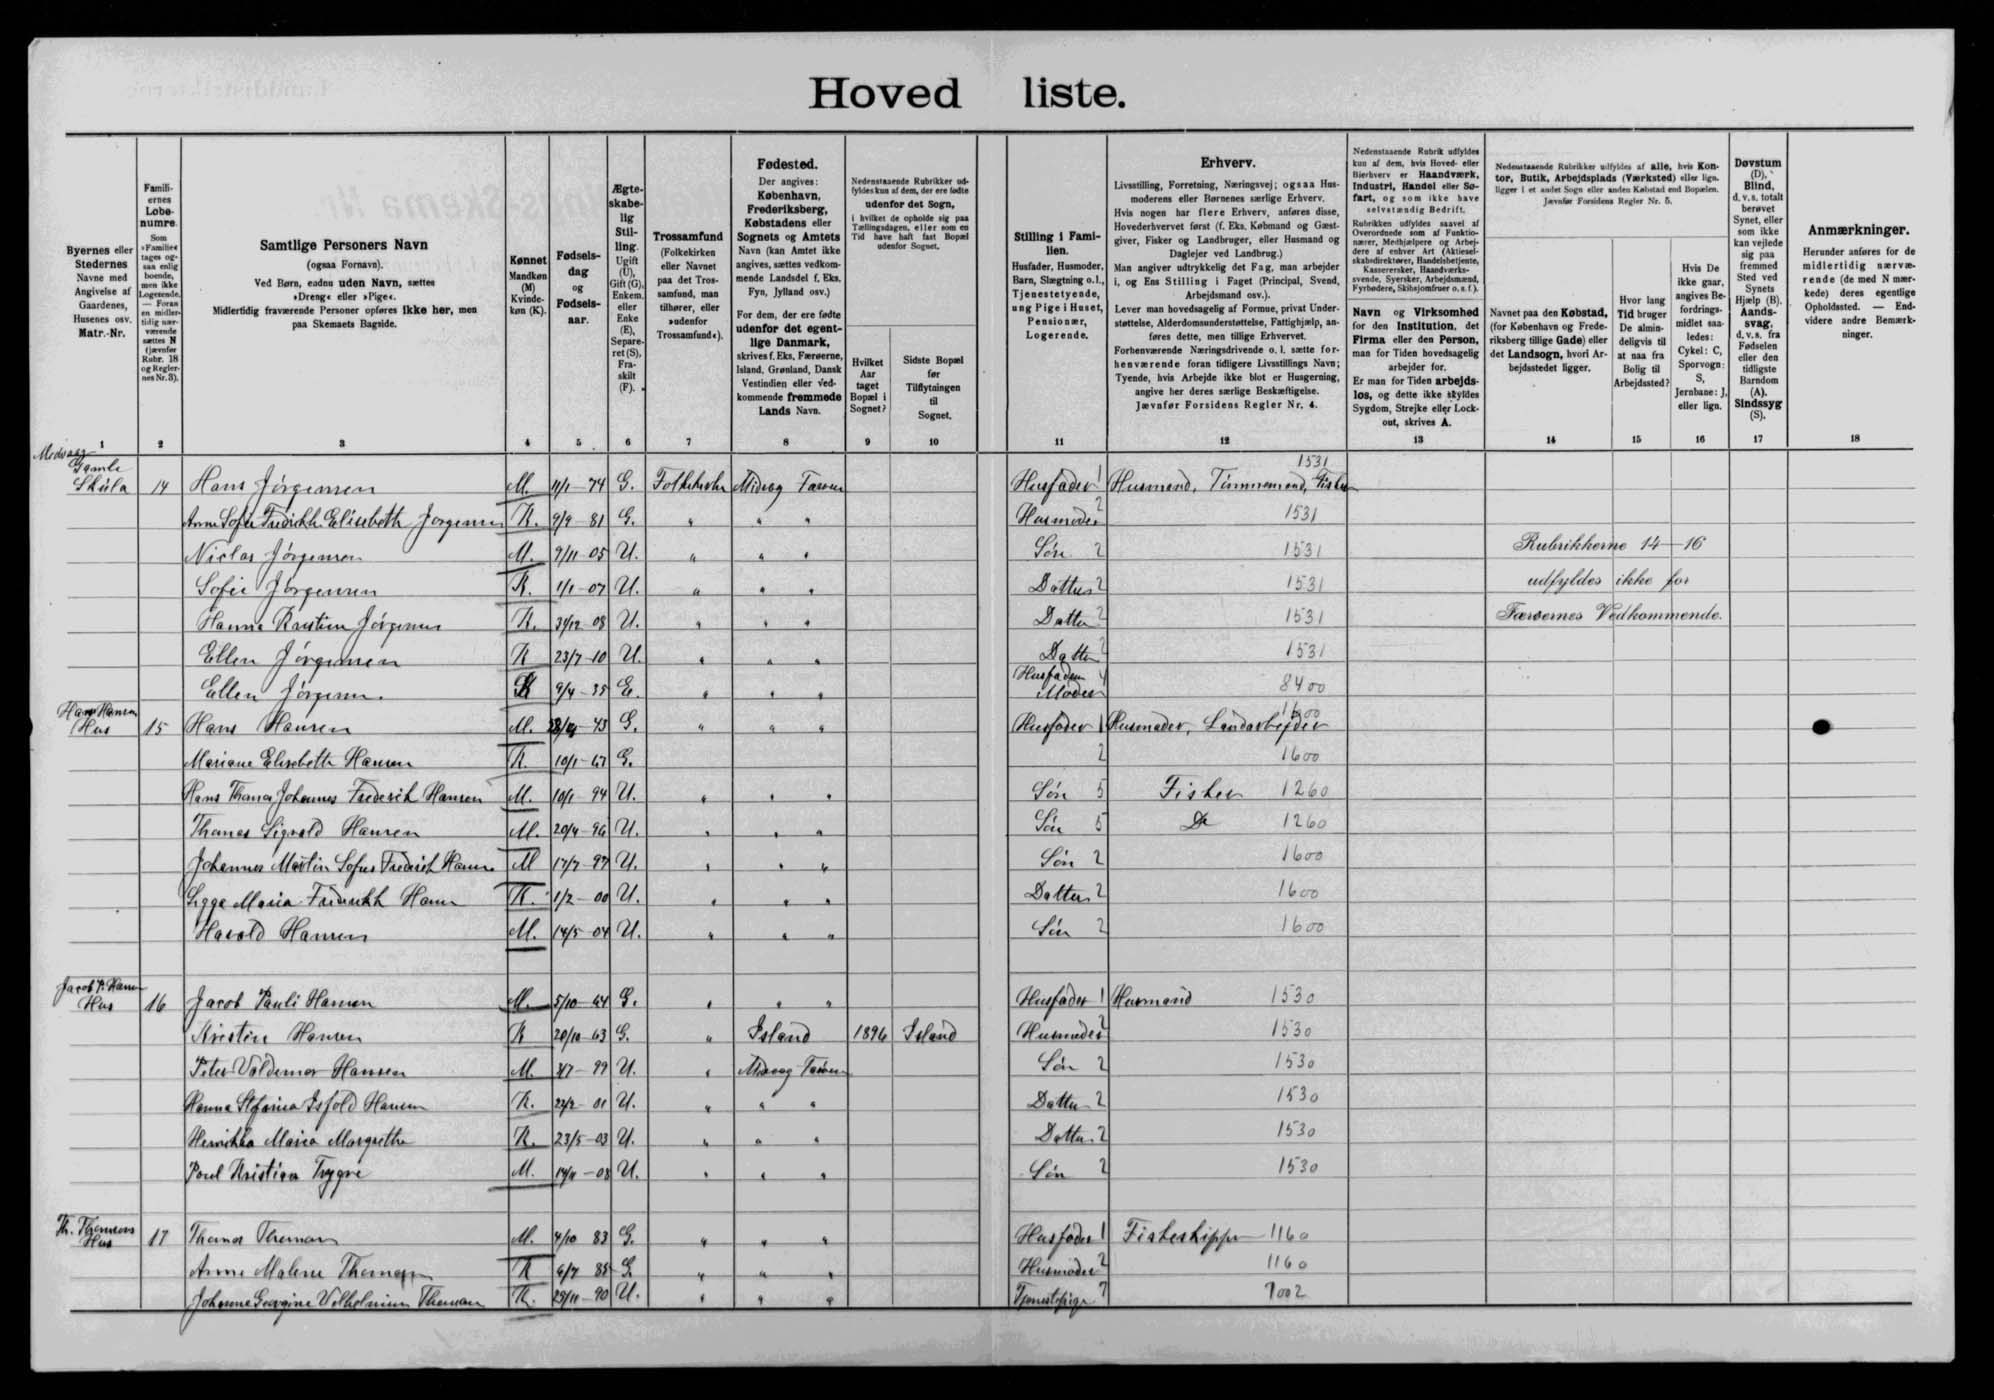 Hoved liste.
Byernes eller Stedernes Navne med Angivelse af Gaardenes, Husenes osv. Matr.-Nr.
Familiernes Løbenumre. Som »Familie« tages ogsaa enlig boende, men ikke Logerende. — Foran en midlertidig nærværende sættes N (jævnfør Rubr. 18 og Reglernes Nr. 3).
Samtlige Personers Navn
(ogsaa Fornavn).
Ved Børn, endnu uden Navn, sættes
»Dreng« eller »Pige«.
Midlertidig fraværende Personer opføres ikke her, men
paa Skemaets Bagside.
Kønnet Mandkøn (M) Kvindekøn (K).
Fødselsdag og Fødselsaar.
Ægteskabelig Stilling. Ugift (U), Gift (G), Enkem. eller Enke (E), Separeret (S), Fraskilt (F).
Trossamfund (Folkekirken eller Navnet paa det Trossamfund, man tilhører, eller »udenfor Trossamfund«).
Fødested.
Der angives:
København,
Frederiksberg,
Købstadens eller
Sognets og Amtets
Navn (kan Amtet ikke
angives, sættes vedkommende Landsdel f. Eks.
Fyn, Jylland osv.)
For dem, der ere fødte
udenfor det egentlige Danmark,
skrives f. Eks. Færøerne,
Island, Grønland, Dansk
Vestindien eller vedkommende fremmede
Lands Navn.
Nedenstaaende Rubrikker udfyldes kun af dem, der ere fødte
udenfor det Sogn,
i hvilket de opholde sig paa
Tællingsdagen, eller som en
Tid have haft fast Bopæl
udenfor Sognet.
Hvilket Aar taget Bopæl i Sognet?
Sidste Bopæl før Tilflytningen til Sognet.
Stilling i Familien.
Husfader, Husmoder, Barn, Slægtning o. l., Tjenestetyende, ung Pige i Huset, Pensionær, Logerende.
Erhverv.
Livsstilling, Forretning, Næringsvej; ogsaa Husmoderens eller Børnenes særlige Erhverv.
Hvis nogen har flere Erhverv, anføres disse,
Hovederhvervet først (f. Eks. Købmand og Gæstgiver, Fisker og Landbruger, eller Husmand og
Daglejer ved Landbrug.)
Man angiver udtrykkelig det Fag, man arbejder
i, og Ens Stilling i Faget (Principal, Svend,
Arbejdsmand osv.).
Lever man hovedsagelig af Formue, privat Understøttelse, Alderdomsunderstøttelse, Fattighjælp, anføres dette, men tillige Erhvervet.
Forhenværende Næringsdrivende o. l. sætte forhenværende foran tidligere Livsstillings Navn;
Tyende, hvis Arbejde ikke blot er Husgerning,
angive her deres særlige Beskæftigelse.
Jævnfør Forsidens Regler Nr. 4.
Nedenstaaende Rubrik udfyldes
kun af dem, hvis Hoved- eller
Bierhverv er Haandværk,
Industri, Handel eller Søfart, og som ikke have
selvstændig Bedrift.
Rubrikken udfyldes saavel af
Overordnede som af Funktionærer, Medhjælpere og Arbejdere af enhver Art (Aktieselskabsdirektører, Handelsbetjente,
Kassererker, Haandværkssvende, Syersker, Arbejdsmænd,
Fyrbødere, Skibsjomfruer o. s. f.).
Navn og Virksomhed
for den Institution, det
Firma eller den Person,
man for Tiden hovedsagelig
arbejder for.
Er man for Tiden arbejdsløs, og dette ikke skyldes
Sygdom, Strejke eller Lockout, skrives A.
Nedenstaaende Rubrikker udfyldes af alle, hvis Kontor, Butik, Arbejdsplads (Værksted) eller lign.
ligger i et andet Sogn eller anden Købstad end Bopælen.
Jævnfør Forsidens Regler Nr. 5.
Navnet paa den Købstad,
(for København og Frederiksberg tillige Gade) eller
det Landsogn, hvori Arbejdsstedet ligger.
Hvor lang Tid bruger De almindeligvis til at naa fra Bolig til Arbejdssted?
Hvis De ikke gaar, angives Befordringsmidlet saaledes: Cykel: C, Sporvogn: S, Jernbane: J, eller lign.
Døvstum (D), Blind, d. v. s. totalt berøvet Synet, eller som ikke kan vejlede sig paa fremmed Sted ved Synets Hjælp (B). Aandssvag, d. v. s. fra Fødselen eller den tidligste Barndom (A). Sindssyg (S).
Anmærkninger.
Herunder anføres for de
midlertidig nærværende (de med N mærkede) deres egentlige
Opholdssted. — Endvidere andre Bemærkninger.
1 2 3 4 5 6 7 8 9 10 11 12 13 14 15 16 17 18
Gamle 1531
Skúla 14 Hans Jörgensen M. 11/1-74 G. Folkekirken Midvag Færøerne Husfader 1 Husmand, Tømmermand, Fisker
Anne Sofie Fredrikke Elisebeth Jørgensen K. 9/9-81 G. " " " Husmoder 2 1531
Niclas Jørgensen M. 9/11-05 U. " " " Søn 2 1531 Rubrikkerne 14–16
Sofie Jørgensen K. 1/1-07 U. " " " Datter 2 1531 udfyldes ikke for
Hanne Jørgensen K. 31/12-08 U. " " " Datter 2 1531 Færøernes Vedkommende.
Ellen Jørgensen K 23/7-10 U. " " " Datter 2 1531
Ellen Jørgensen K 9/4-35 E. " " " Husfaderens Moder 4 8400
Hans Hansen 1600
Hus 15 Hans Hansen M. G. " " " Husfader 1 Landarbejder
Mariane Elisebeth Hansen K. 10/1-67 G. 2 1600
Hans Thomas Johannes Frederik Hansen M. 10/1-94 U. " " " Søn 5 Fisker 1260
Thomas Sigvald Hansen M. 20/4-96 U. " " " Søn 5 Do 1260
Johannes Martin Sofus Fredrik Hansen M 17/7-97 U. " " " Søn 2 1600
Maria Fredrikke Hansen K. 1/2-00 U. " " " Datter 2 1600
Harald Hansen M. 14/5-04 U. " " " Søn 2 1600
Jacob P. Hansen
Hus 16 Jacob Pauli Hansen M. 5/10-64 G. " " " Husfader 1 Husmand 1530
Kristin Hansen K 20/10-63 G. " Island 1896 Island Husmoder 2 1530
Peter Valdemar Hansen M. U. " Midvag Færøerne Søn 2 1530
Hanna Stefania Isfold Hansen K. 22/2-01 U. " " " Datter 2 1530
Henrikka Maria Margretha K. 23/5-03 U. " " " Datter 2 1530
Poul Kristian Trygve M. U. " " " Søn 2 1530
Th. Thomsens
Hus 17 Thomas Thomsen M. 4/10 83 G. " " " Husfader 1 Fiskeskipper 1160
Anne Malene Thomsen K 6/7 85 G. " " " Husmoder 2 1160
Johanne Georgine Vilhelmine Thomsen K. 29/11-90 U. " " " Tjenestepige 7 7002